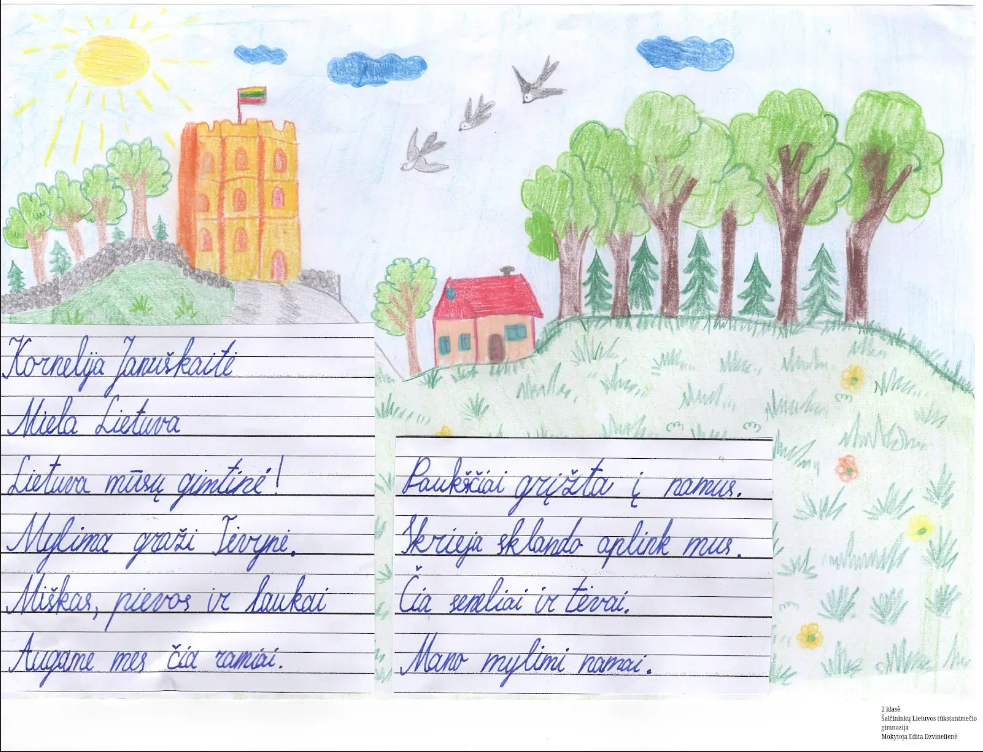 Kornelija Januškaitė
Miela Lietuva
Lietuva mūsų gimtinė!
Mylima graži Tėvynė.
Miškas, pievos ir laukai
Augame mes čia ramiai.
Paukščiai grįžta į namus.
Skrieja sklando aplink mus.
Čia seneliai ir tėvai.
Mano mylimi namai.
2 klasė
Šalčininkų Lietuvos tūkstantmečio
gimnazija
Mokytoja Edita Dzvinelienė